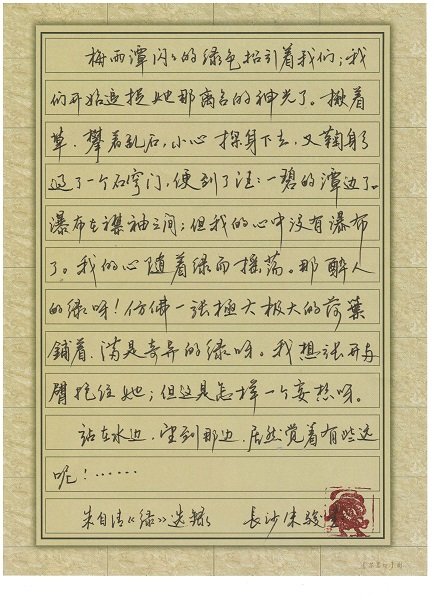 梅雨潭闪〻的绿色招引着我们;我
们开始追捉她那离合的神光了。揪着
草,攀着乱石,小心探身下去,又鞠躬
过了一个石穹门,便到了汪〻一碧的潭边了。
瀑布在襟袖之间;但我的心中没有瀑布
了。我的心随着绿而摇荡。那醉人
的绿呀!仿佛一张極大极大的荷葉
鋪着,满是奇异的绿呀。我想张开两
臂抱住她;但这是怎样一个妄想呀。
站在水边,望到那边,居然觉着有些远
呢!……
朱自清《绿》选録 長沙